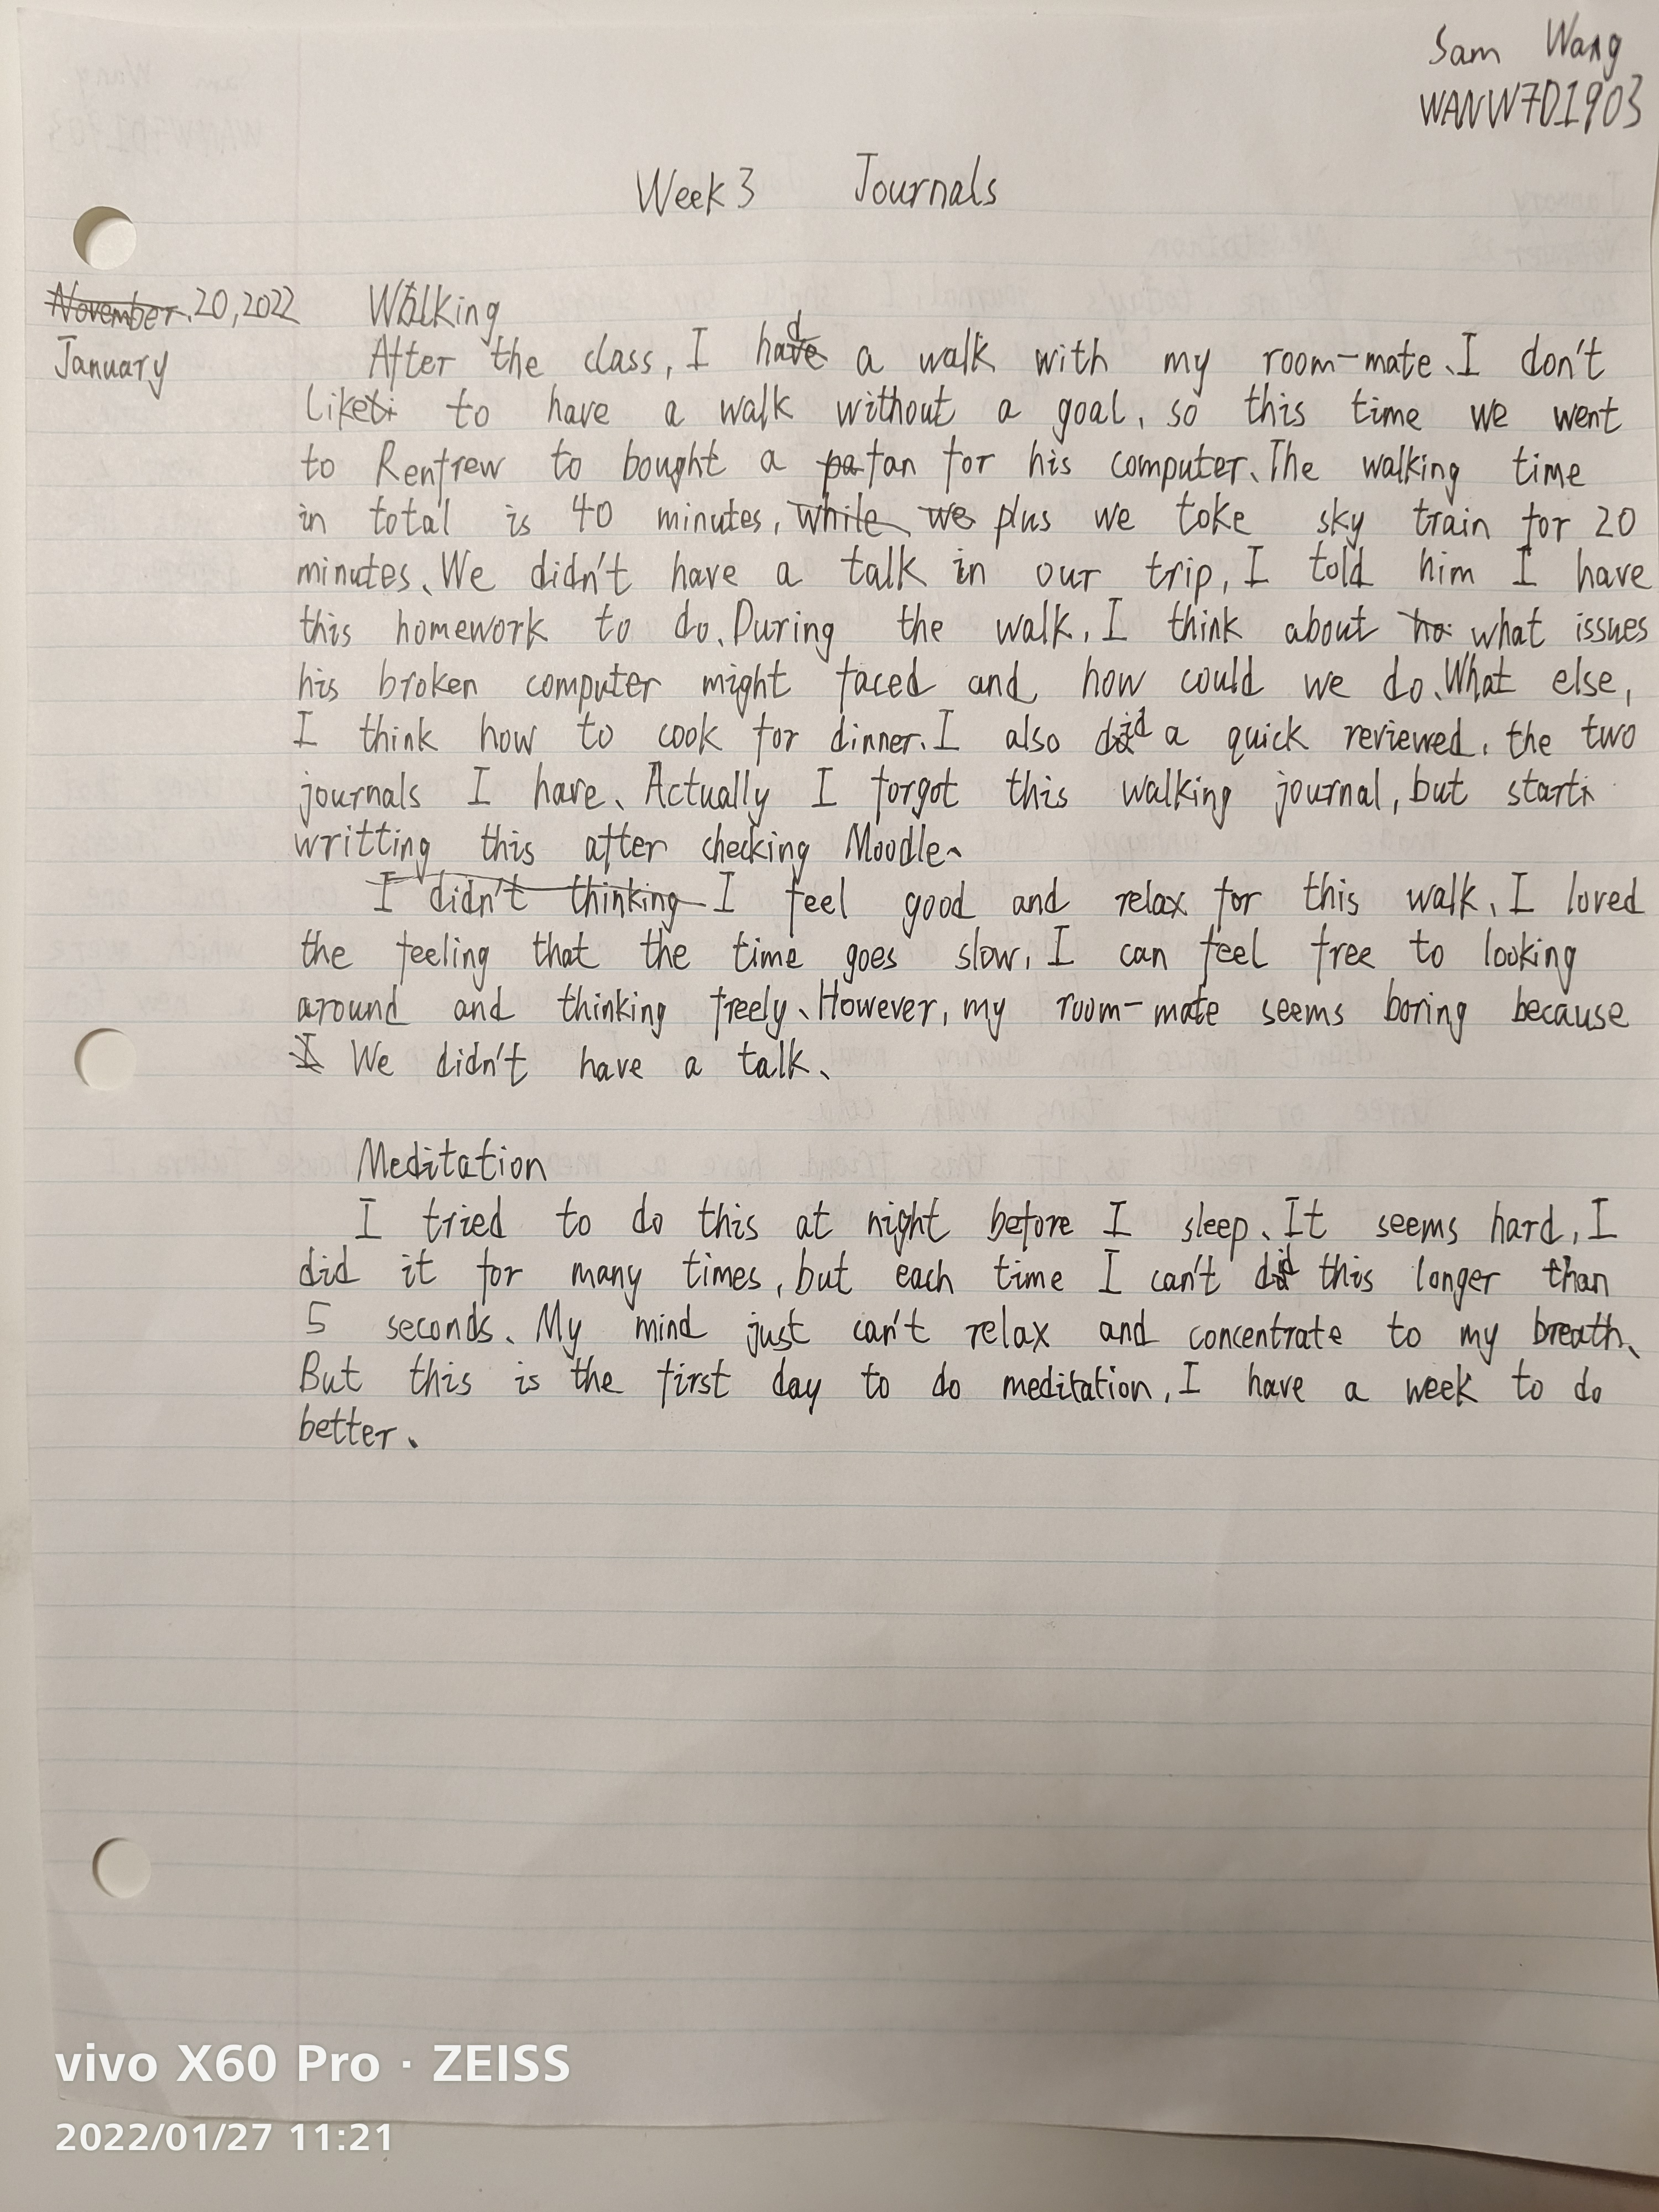 Sam Wang
WANW7D1903
Week 3 Journals
November. 20, 2022 Walking
January After the class, I had a walk with my room-mate. I don't
like to have a walk without a goal, so this time we went
to Renfrew to bought a fan for his computer. The walking time
in total is 40 minutes, while we plus we toke sky train for 20
minutes. We didn't have a talk in our trip, I told him I have
this homework to do. During the walk, I think about what issues
his broken computer might faced and how could we do. What else,
I think how to cook for dinner. I also did a quick reviewed, the two
journals I have. Actually I forgot this walking journal, but start
writting this after checking Moodle.
I didn't thinking I feel good and relax for this walk. I loved
the feeling that the time goes slow, I can feel free to looking
around and thinking freely. However, my room-mate seems boring because
I We didn't have a talk.
Meditation
I tried to do this at night before I sleep. It seems hard, I
did it for many times, but each time I can't did this longer than
5 seconds. My mind just can't relax and concentrate to my breath.
But this is the first day to do meditation, I have a week to do
better.
vivo X60 Pro · ZEISS
2022/01/27 11:21